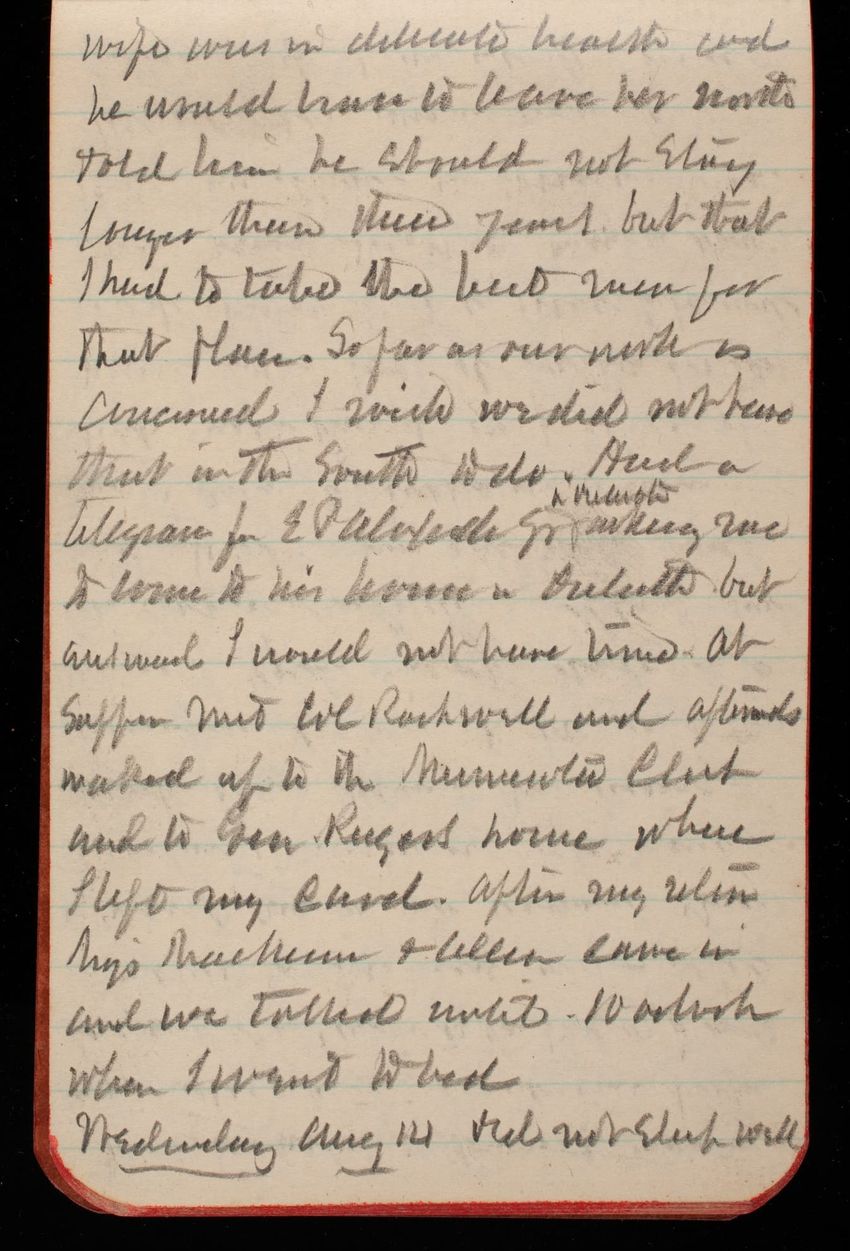 wife was in delicate health and
he would have to leave her north
told him he should not stay
longer than three years but that
I had to take the best men for
that place. So far as our work is
concerned I wish we did not have
that in the South to do. Had a
in Duluth
telegram fr E P Alexander asking me
to come to his house in Duluth but
answered I would not have time. At
Supper met Col Rockwell and afterwards
walked up to the Minnesota Club
and to Gen Rugers home where
I left my card. After my return
Majs & Allen came in
and we talked until 10 oclock
when I went to bed
Wednesday Aug 14 Did not sleep well